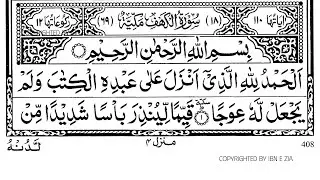 اٰيَاتُهَا ١١٠ (١٨) سُوْرَةُ الْكَهْفِ مَكِّيَّةٌ (٦٩) رُكُوْعَاتُهَا ١٢
بِسْمِ اللّٰهِ الرَّحْمٰنِ الرَّحِيْمِ
اَلْحَمْدُ لِلّٰهِ الَّذِيْٓ اَنْزَلَ عَلٰى عَبْدِهِ الْكِتٰبَ وَلَمْ
يَجْعَلْ لَّهٗ عِوَجًا ١ قَيِّمًا لِّيُنْذِرَ بَاْسًا شَدِيْدًا مِّنْ
لَّدُنْهُ
منزل ٤
408
COPYRIGHTED BY IBN E ZIA